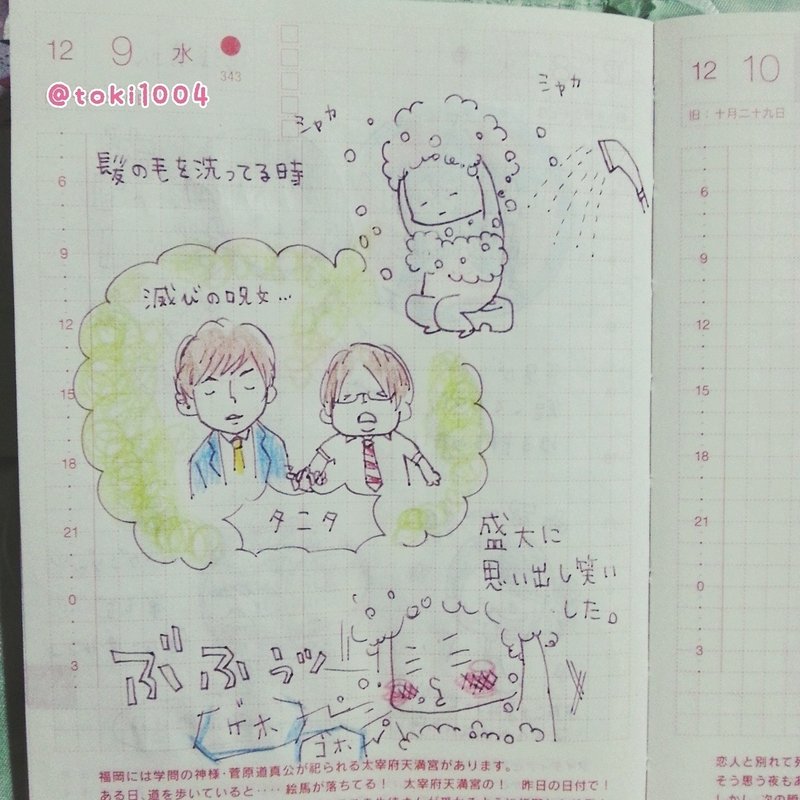 12 9 水
343
@toki1004
シャカ
シャカ
髪の毛を洗ってる時
滅びの呪文…
タニタ
盛大に
思い出し笑い
した。
ぶふぅッ
ゲホ
ゴホ
6
9
12
15
18
21
0
3
福岡には学問の神様・菅原道真公が祀られる太宰府天満宮があります。
ある日、道を歩いていると‥‥絵馬が落ちてる! 太宰府天満宮の! 昨日の日付で!
12 10
旧:十月二十九日
6
9
12
15
18
21
0
3
恋人と別れて死
そう思う夜もあ